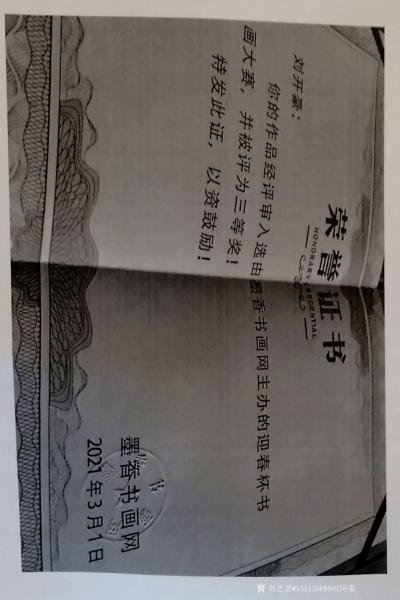 荣誉证书
HONORARY CREDENTIAL
刘开豪：
你的作品经评审入选由墨香书画网主办的迎春杯书
画大赛，并被评为三等奖！
特发此证，以资鼓励！
墨香书画网
2021年3月1日